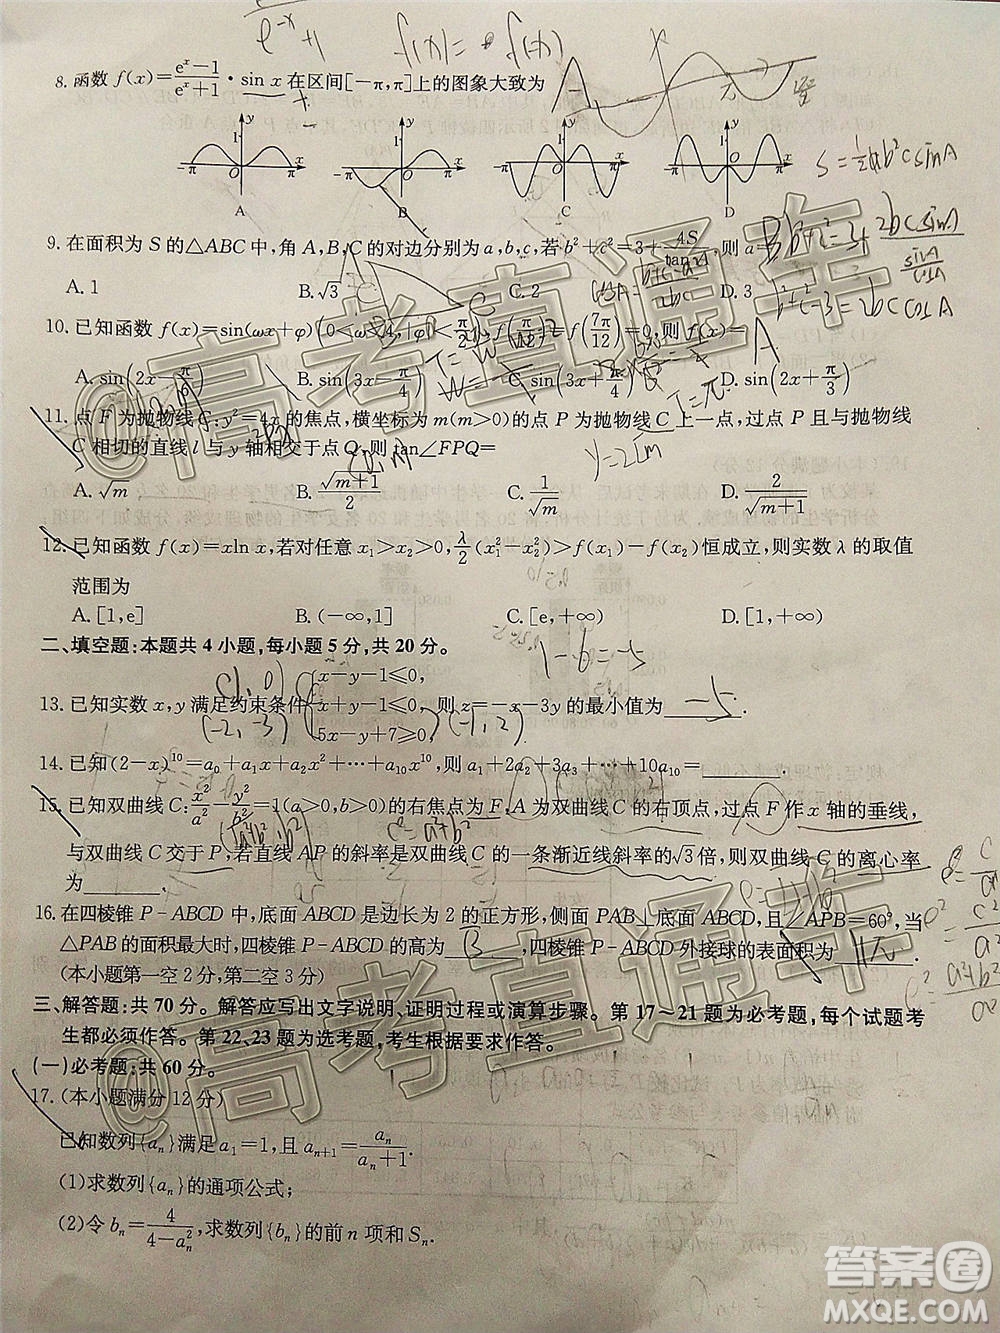 e⁻ˣ+1
f(x)= f(-x)
8. 函数 f(x)=(eˣ-1)/(eˣ+1)·sin x 在区间[-π,π]上的图象大致为
A B C D
S=½
9. 在面积为 S 的△ABC 中,角 A,B,C 的对边分别为 a,b,c,若 b²+c²=3+4S/tan A,则 a=
A. 1 B. √3 C. 2 D. 3
b²+c²-3=2bc cosA
10. 已知函数 f(x)=sin(ωx+φ)(0<ω<4,|φ|<π/2),f(π/12)=f(7π/12)=0,则 f(x)=
A. sin(2x-π/6) B. sin(3x-π/4) C. sin(3x+π/4) D. sin(2x+π/3)
11. 点 F 为抛物线 C:y²=4x 的焦点,横坐标为 m(m>0)的点 P 为抛物线 C 上一点,过点 P 且与抛物线
C 相切的直线 l 与 y 轴相交于点 Q,则 tan∠FPQ=
y=2√m
A. √m B. √(m+1)/2 C. 1/√m D. 2/√(m+1)
12. 已知函数 f(x)=xln x,若对任意 x₁>x₂>0,λ/2(x₁²-x₂²)>f(x₁)-f(x₂)恒成立,则实数 λ 的取值
范围为
A. [1,e] B. (-∞,1] C. [e,+∞) D. [1,+∞)
二、填空题:本题共 4 小题,每小题 5 分,共 20 分。
1-6=-5
13. 已知实数 x,y 满足约束条件{x-y-1≤0, x+y-1≤0, 5x-y+7≥0, 则 z=-x-3y 的最小值为 -5 .
(1,0)
(-2,-3) (-1,2)
14. 已知(2-x)¹⁰=a₀+a₁x+a₂x²+…+a₁₀x¹⁰,则 a₁+2a₂+3a₃+…+10a₁₀=________.
15. 已知双曲线 C:x²/a²-y²/b²=1(a>0,b>0)的右焦点为 F,A 为双曲线 C 的右顶点,过点 F 作 x 轴的垂线,
c²=a²+b²
与双曲线 C 交于 P,若直线 AP 的斜率是双曲线 C 的一条渐近线斜率的√3倍,则双曲线 C 的离心率
为________.
16. 在四棱锥 P-ABCD 中,底面 ABCD 是边长为 2 的正方形,侧面 PAB⊥底面 ABCD,且∠APB=60°,当
△PAB 的面积最大时,四棱锥 P-ABCD 的高为________,四棱锥 P-ABCD 外接球的表面积为________.
(本小题第一空 2 分,第二空 3 分)
三、解答题:共 70 分。解答应写出文字说明、证明过程或演算步骤。第 17~21 题为必考题,每个试题考
生都必须作答。第 22、23 题为选考题,考生根据要求作答。
(一)必考题:共 60 分。
17. (本小题满分 12 分)
已知数列{aₙ}满足 a₁=1,且 aₙ₊₁=aₙ/(aₙ+1).
(1)求数列{aₙ}的通项公式;
(2)令 bₙ=4/(4-aₙ²),求数列{bₙ}的前 n 项和 Sₙ.
@高考直通车
@高考直通车
答案圈
MXQE.COM